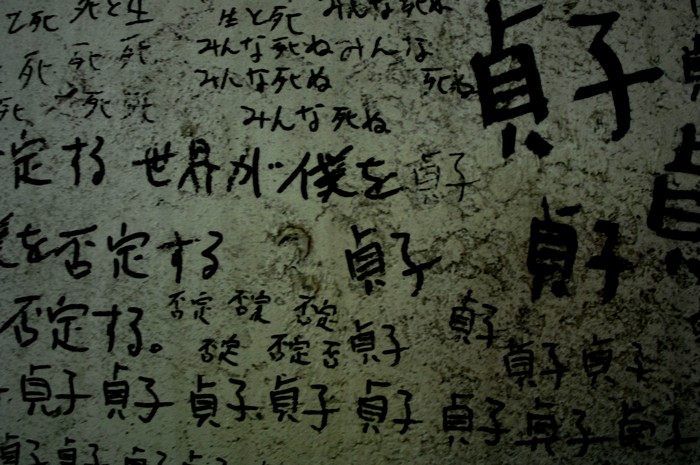 と死 死と生 生と死 みんな死ね
みんな死ねみんな
死 死 死 みんな死ね 死ね
死 死 死 みんな死ね
貞子
定する 世界が僕を 貞子
を否定する 貞子 貞子
否定する。 否定 否定 否定
否定 否定 否 貞子 貞子
貞子 貞子
貞子 貞子 貞子 貞子 貞子 貞子 貞子 貞子
貞子 貞子 貞子